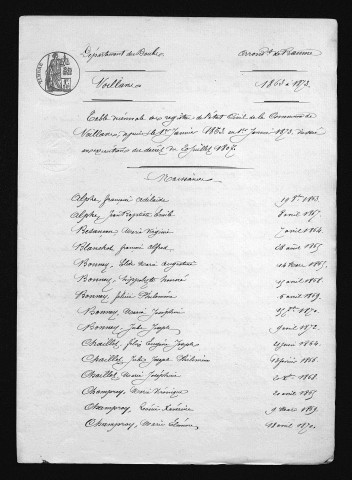 Département du Doubs
Arrond.t de Baume
Voillans
1863 à 1873.
Table décennale aux registres de l'état civil de la Commune de
Voillans, depuis le 1er Janvier 1863 au 1er Janvier 1873, dressée
en exécution du décret du 20 juillet 1807.
Naissances
Alphe, françois Adélaïde 19 1863.
Alphe, Jean Baptiste Emile 8 avril 1867.
Besancon, Marie Virginie avril 1864.
Blanchot, françois Alfred 26 août 1865.
Bonnay, Marie Augustine 14 Mars 1865.
Bonnay, hippolyte honoré 17 avril 1868.
Bonnay, félicie Philomène 6 avril 1869.
Bonnay, Marie Joséphine 1870.
Bonnay, Jules Joseph 9 avril 1872.
Chaillet, félix Eugène Joseph 20 juin 1864.
Chaillet, Jules Joseph Philomin 13 février 1866.
Chaillet, Marie Joséphine 1868.
Champroy, Marie Véronique 20 août 1867.
Champroy, Xavérine 9 Mars 1869.
Champroy, Marie 18 avril 1870.